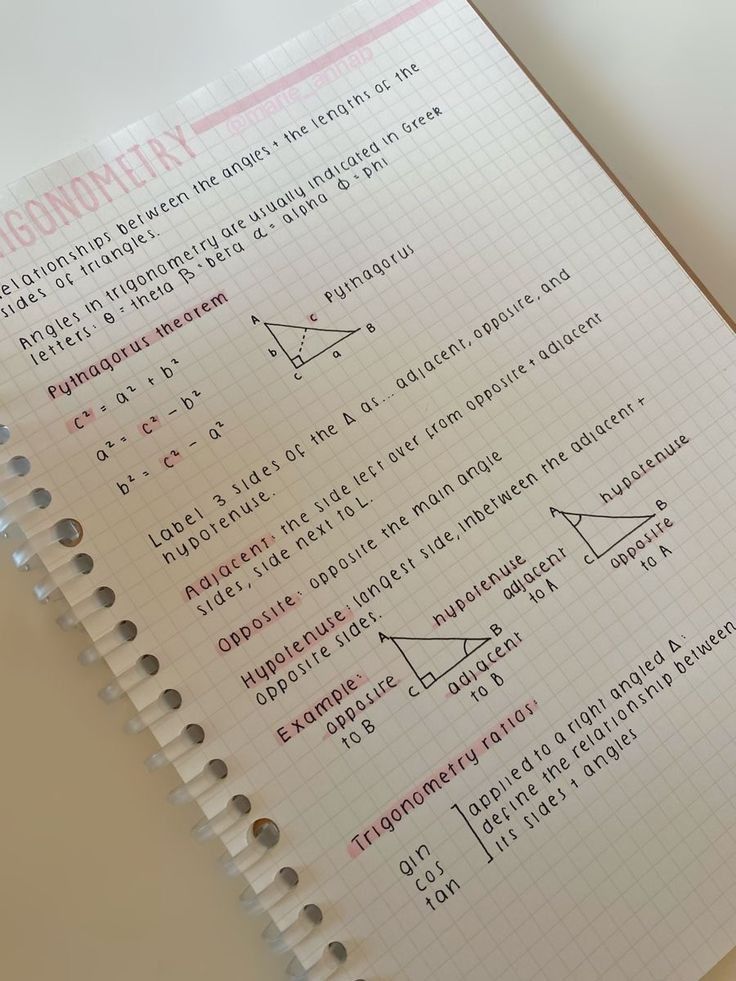 IGONOMETRY
@marie_annab
elationships between the angles + the lengths of the
sides of triangles.
Angles in trigonometry are usually indicated in Greek
letters: θ = theta β = beta α = alpha Φ = phi
Pythagorus theorem
c² = a² + b²
a² = c² - b²
b² = c² - a²
A c Pythagorus
b B
C a
Label 3 sides of the Δ as... adjacent, opposite, and
hypotenuse.
Adjacent: the side left over from opposite + adjacent
sides, side next to L.
Opposite: opposite the main angle
Hypotenuse: longest side, inbetween the adjacent +
opposite sides.
Example:
hypotenuse
A B
opposite
to B
C
adjacent
to B
hypotenuse
A B
adjacent
to A
C
opposite
to A
Trigonometry ratios:
gin
cos
tan
applied to a right angled Δ:
define the relationship between
its sides + angles